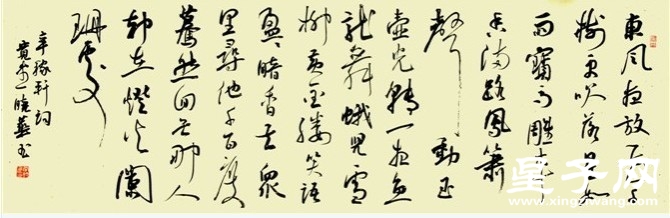 東风夜放花千
樹更吹落星如
雨寶馬雕車
香满路鳳簫
聲動玉
壶光轉一夜魚
龍舞蛾兒雪
柳黄金缕笑语
盈盈暗香去眾
里尋他千百度
驀然回首那人
却在燈火闌
珊處
辛稼轩词
星子网
www.xingziwang.com